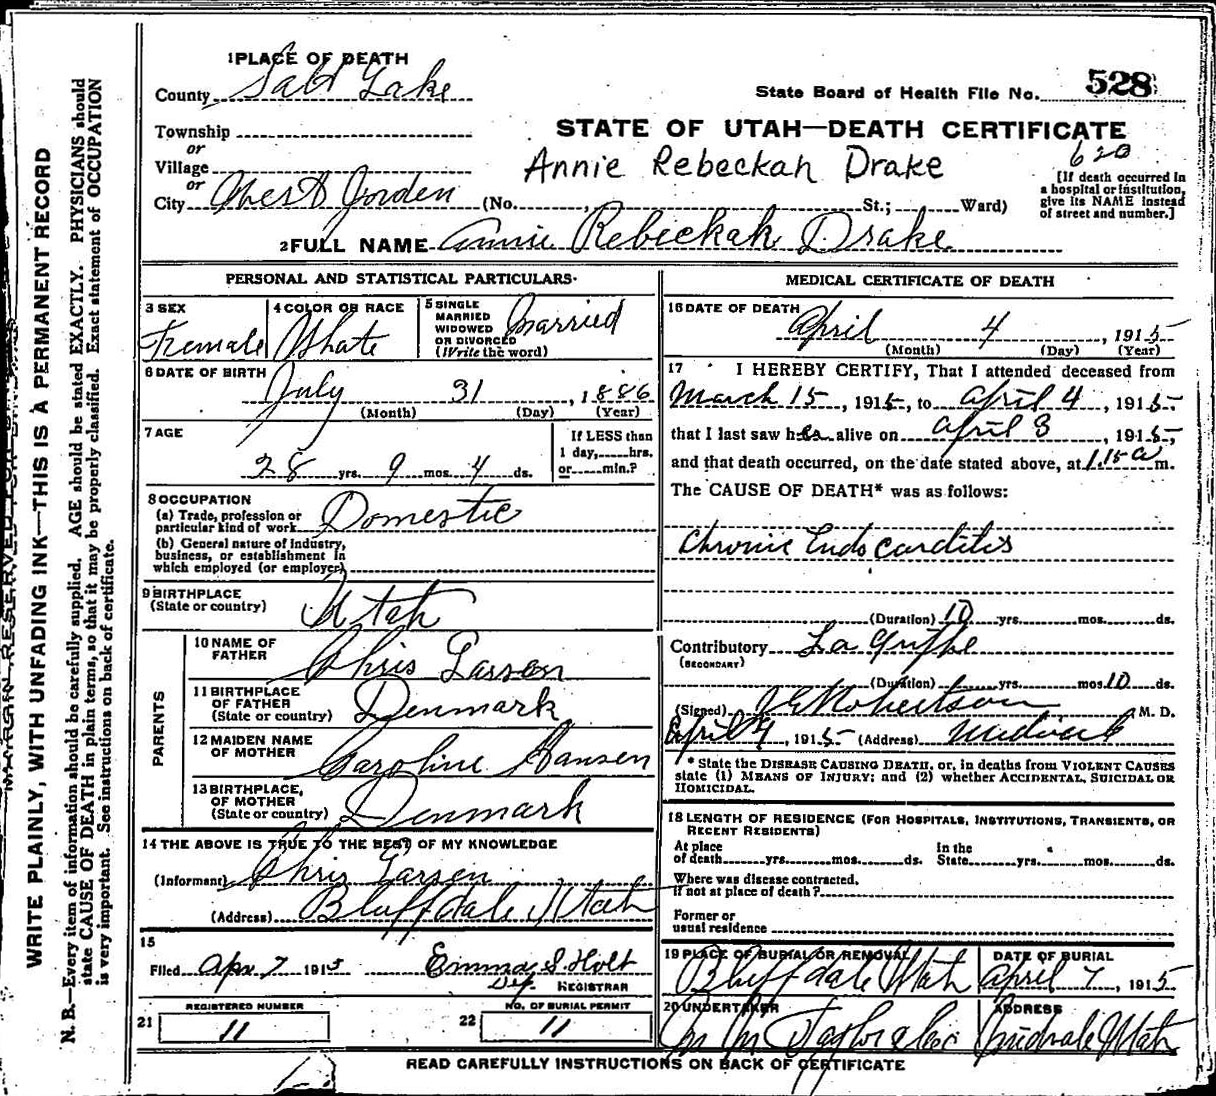 MARGIN RESERVED FOR BINDING
WRITE PLAINLY, WITH UNFADING INK—THIS IS A PERMANENT RECORD
N. B.—Every item of information should be carefully supplied. AGE should be stated EXACTLY. PHYSICIANS should
state CAUSE OF DEATH in plain terms, so that it may be properly classified. Exact statement of OCCUPATION
is very important. See instructions on back of certificate.
1 PLACE OF DEATH
County Salt Lake
State Board of Health File No. 528
Township
or
Village
or
City West Jorden (No. , St.; Ward)
STATE OF UTAH—DEATH CERTIFICATE
Annie Rebeckah Drake
620
[If death occurred in
a hospital or institution,
give its NAME instead
of street and number.]
2 FULL NAME Annie Rebeckah Drake
PERSONAL AND STATISTICAL PARTICULARS
3 SEX
Female
4 COLOR OR RACE
White
5 SINGLE
MARRIED
WIDOWED
OR DIVORCED
(Write the word)
Married
6 DATE OF BIRTH
July 31, 1886
(Month) (Day) (Year)
7 AGE
28 yrs. 9 mos. 4 ds.
If LESS than
1 day, hrs.
or min.?
8 OCCUPATION
(a) Trade, profession or
particular kind of work
Domestic
(b) General nature of industry,
business, or establishment in
which employed (or employer)
9 BIRTHPLACE
(State or country)
Utah
PARENTS
10 NAME OF
FATHER
Chris Larsen
11 BIRTHPLACE
OF FATHER
(State or country)
Denmark
12 MAIDEN NAME
OF MOTHER
Caroline Hansen
13 BIRTHPLACE,
OF MOTHER
(State or country)
Denmark
14 THE ABOVE IS TRUE TO THE BEST OF MY KNOWLEDGE
(Informant) Chris Larsen
(Address) Bluffdale Utah
15
Filed Apr 7 1915 Emma S. Holt
Dep. REGISTRAR
REGISTERED NUMBER
21 11
NO. OF BURIAL PERMIT
22 11
MEDICAL CERTIFICATE OF DEATH
16 DATE OF DEATH
April 4, 1915
(Month) (Day) (Year)
17 I HEREBY CERTIFY, That I attended deceased from
March 15, 1915, to April 4, 1915,
that I last saw her alive on April 3, 1915,
and that death occurred, on the date stated above, at 1.15 a m.
The CAUSE OF DEATH* was as follows:
Chronic Endocarditis
(Duration) 10 yrs. mos. ds.
Contributory La Grippe
(SECONDARY)
(Duration) yrs. mos. 10 ds.
(Signed) Robertson M. D.
April 4, 1915 (Address) Midvale
* State the DISEASE CAUSING DEATH, or, in deaths from VIOLENT CAUSES
state (1) MEANS OF INJURY; and (2) whether ACCIDENTAL, SUICIDAL OR
HOMICIDAL.
18 LENGTH OF RESIDENCE (FOR HOSPITALS, INSTITUTIONS, TRANSIENTS, OR
RECENT RESIDENTS)
At place
of death yrs. mos. ds.
In the
State yrs. mos. ds.
Where was disease contracted,
if not at place of death?
Former or
usual residence
19 PLACE OF BURIAL OR REMOVAL
Bluffdale Utah
DATE OF BURIAL
April 7, 1915
20 UNDERTAKER
Taylor
ADDRESS
Midvale Utah
READ CAREFULLY INSTRUCTIONS ON BACK OF CERTIFICATE